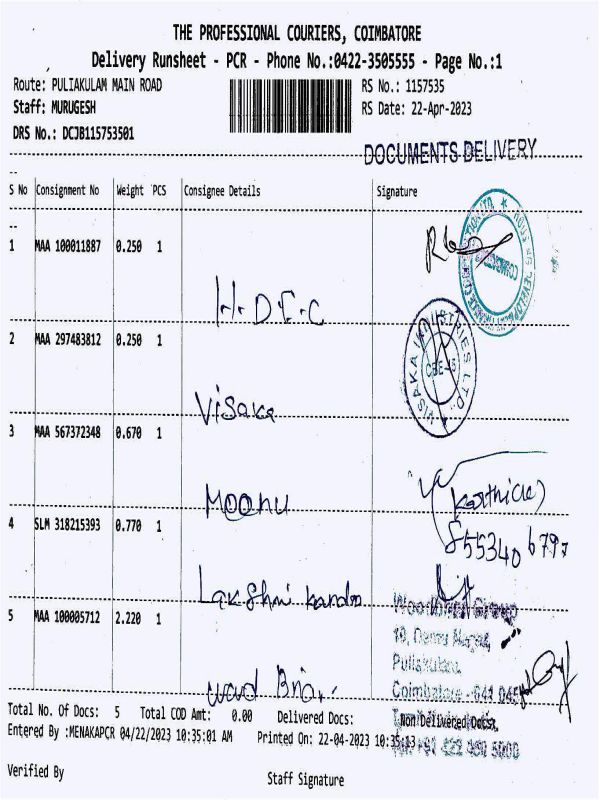 THE PROFESSIONAL COURIERS, COIMBATORE
Delivery Runsheet - PCR - Phone No.:0422-3505555 - Page No.:1
Route: PULIAKULAM MAIN ROAD RS No.: 1157535
Staff: MURUGESH RS Date: 22-Apr-2023
DRS No.: DCJB115753501
DOCUMENTS DELIVERY
S No Consignment No Weight PCS Consignee Details Signature
1 MAA 100011887 0.250 1
H.D.F.C
2 MAA 297483812 0.250 1
VISAKA INDUSTRIES LTD.
CBE-45
Visaka
3 MAA 567372348 0.670 1
Moonu
4 SLM 318215393 0.770 1
Lakshmi
5 MAA 100005712 2.220 1
Group
Puliakulam,
Coimbatore - 641 045
Total No. Of Docs: 5 Total COD Amt: 0.00 Delivered Docs: Non Delivered Docs:
Entered By :MENAKAPCR 04/22/2023 10:35:01 AM Printed On: 22-04-2023 10:35:13
Verified By Staff Signature